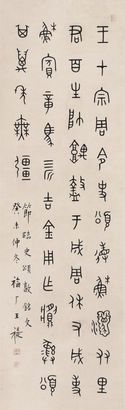 王才宗周令史頌省蘇姻友里
君百生帥堣盩于成周休又成事
蘇賓章馬四匹吉金用乍䵼彝頌
其萬年無疆
節臨史頌敦銘文
癸未仲冬福厂王禔